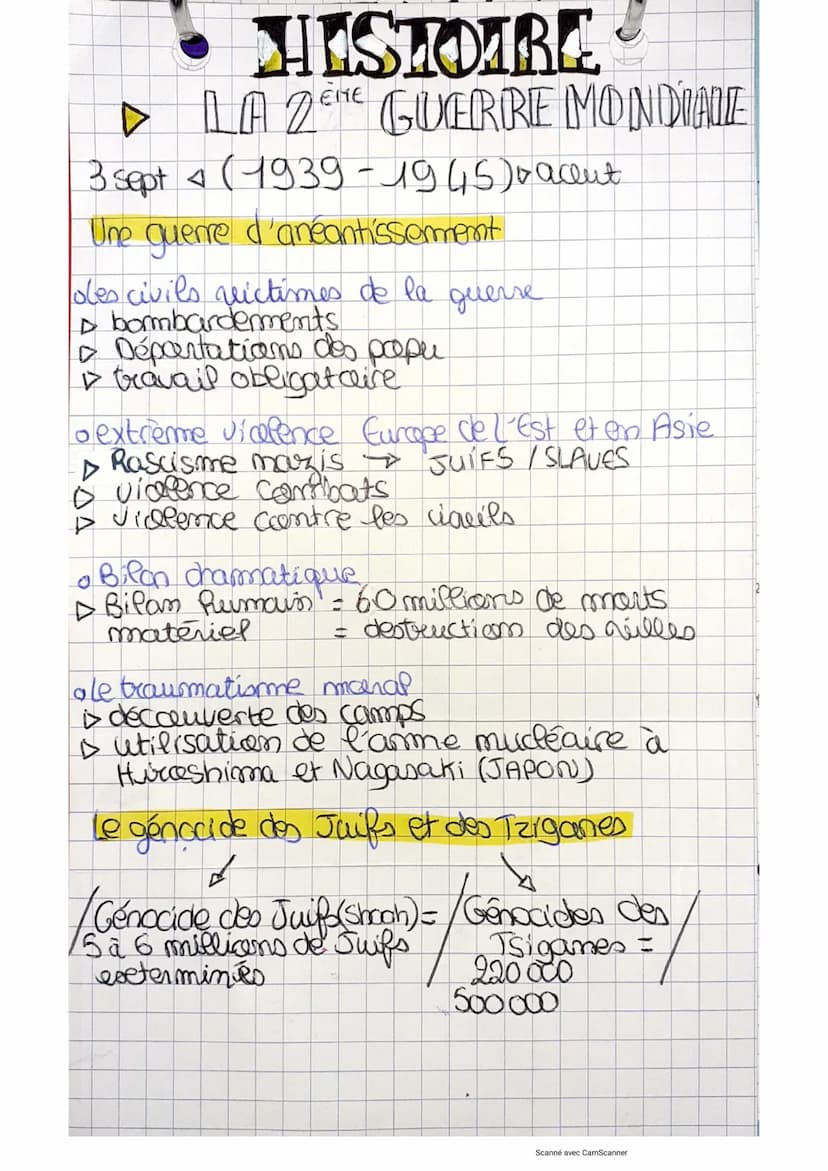 HISTOIRE
LA 2ÈME GUERRE MONDIALE
3 sept (1939 - 1945) aout
Une guerre d'anéantissement
Les civils victimes de la guerre
bombardements
Déportations des popu
travail obligatoire
extrème violence Europe de l'Est et en Asie
Rascisme nazis → JUIFS / SLAVES
violence combats
violence contre les civils
Bilan dramatique
Bilan humain = 60 millions de morts
matériel = destruction des villes
Le traumatisme moral
découverte des camps
utilisation de l'arme nucléaire à
Hiroshima et Nagasaki (JAPON)
Le génocide des Juifs et des Tziganes
Génocide des Juifs (Shoah) =
5 à 6 millions de Juifs
exterminés
Génocides des
Tsiganes =
220 000
500 000
Scanné avec CamScanner